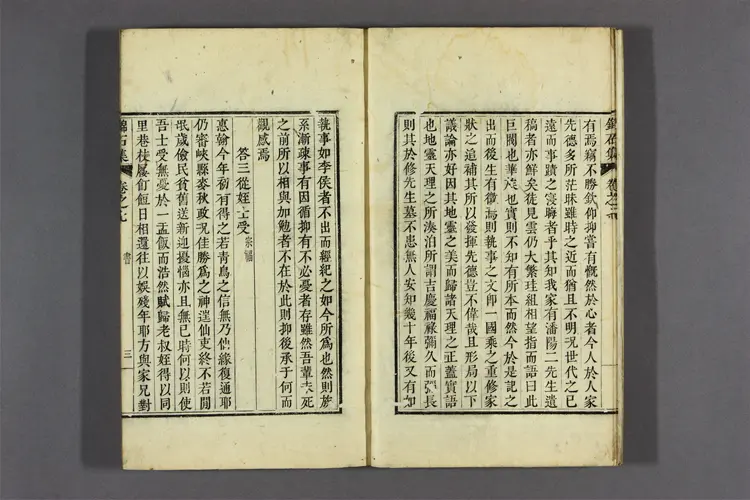 有焉竊不勝欽仰抑嘗有慨然於心者今人於人家
先德多所茫昧雖時之近而猶且不明況世代之已
遠而事蹟之寖晦者乎其知我家有潘陽二先生遺
稿者亦鮮矣徒見雲仍大繁珪組相望指而語曰此
巨閥也華族也實則不知有所本而然今於是記之
出而後生有徵焉則執事之文卽一國乘之重修家
狀之追補其所以發揮先德豈不偉哉且形局以下
議論亦好因其地靈之美而歸諸天理之正蓋實語
也地靈天理之所湊泊所謂吉慶福祿彌久而彌長
則其於修先生墓不患無人安知幾十年後又有如
執事如李侯者不出而經紀之如今所爲也然則族
系漸疎事有因循抑有不必憂者存雖然吾輩未死
之前所以相與加勉者不在於此則抑後承于何而
觀感焉
答三從姪士受 宗
惠翰今年初有得之若靑鳥之信無乃仙緣復通耶
仍審峽縣麥秋政況佳勝爲之神遑仙吏終不若閒
氓歲儉民貧舊送新迎擾惱亦且無已時何以則使
吾士受無憂於一盂飯而浩然賦歸老叔姪得以同
里巷杖屨飣飯日相還往以娛殘年耶方與家兄對
石集
卷之
書
三